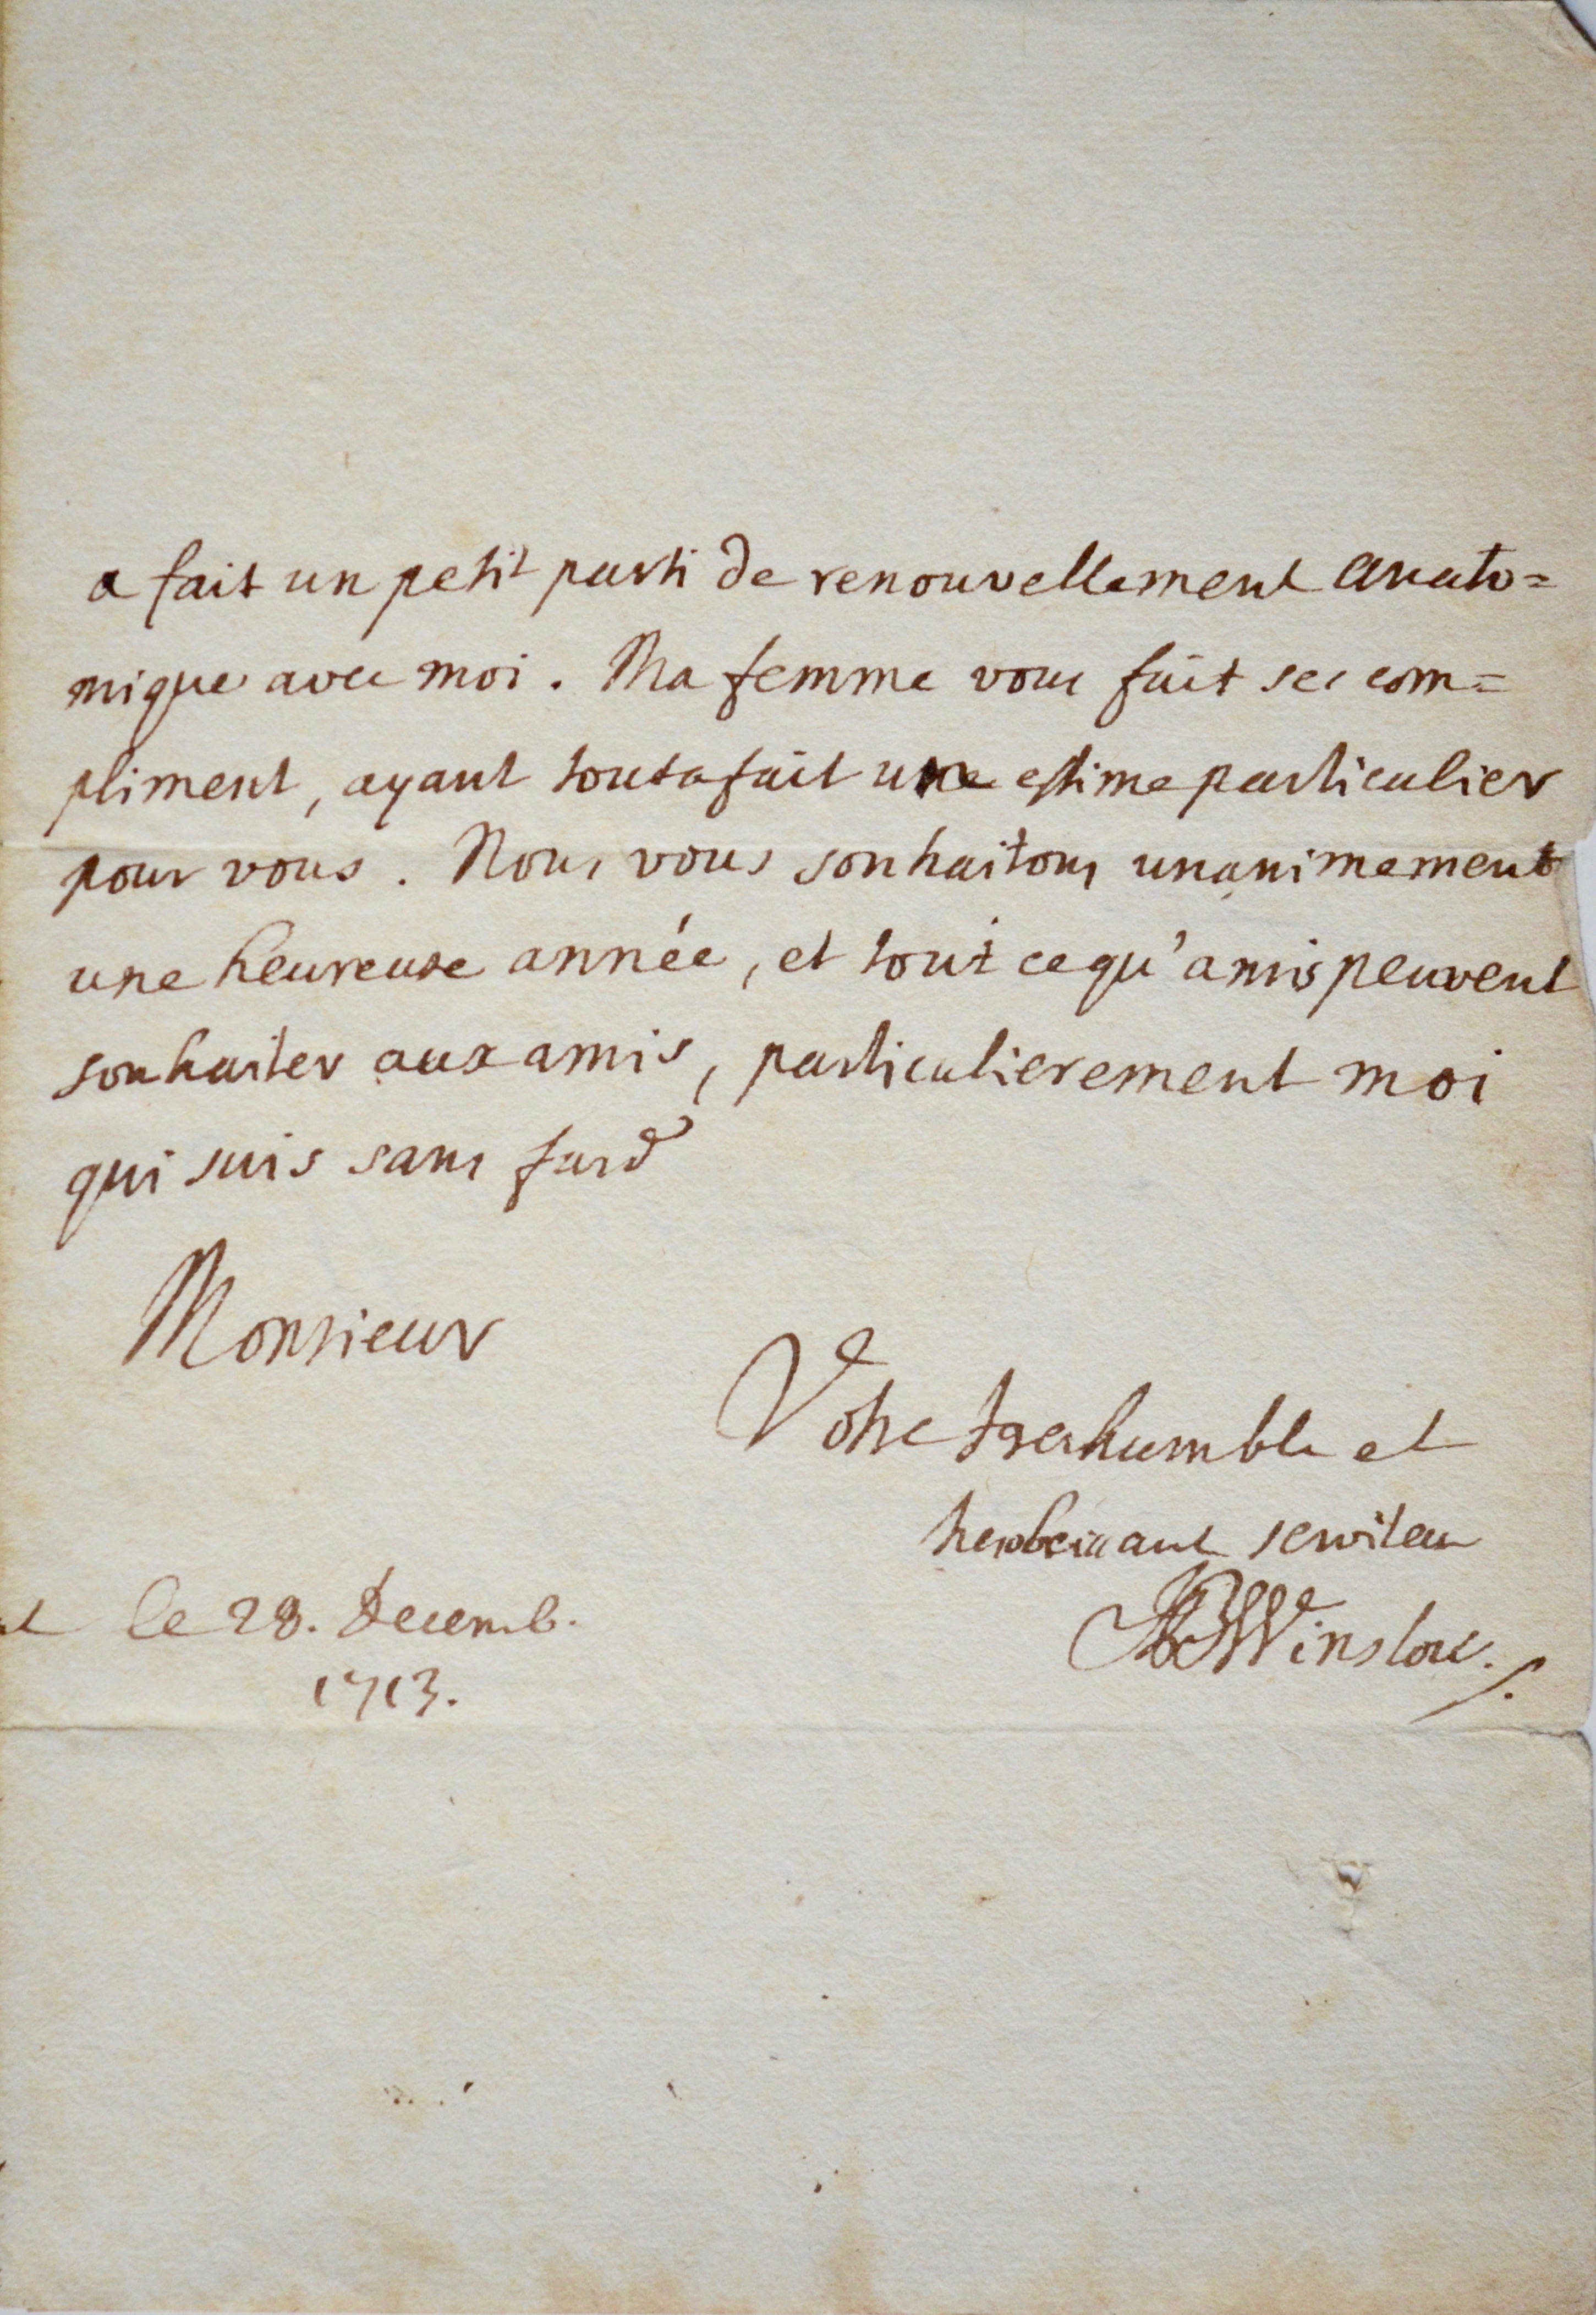 a fait un petit parti de renouvellement anato=
mique avec moi. Ma femme vous fait ses com=
pliment, ayant toutafait une estime particulier
pour vous. Nous vous souhaitons unanimement
une heureuse année, et tout ce qu'amis peuvent
souhaiter aux amis, particulierement moi
qui suis sans fard
Monsieur
Votre treshumble et
tresobeissant serviteur
le 28. Decemb.
Winslow.
1713.